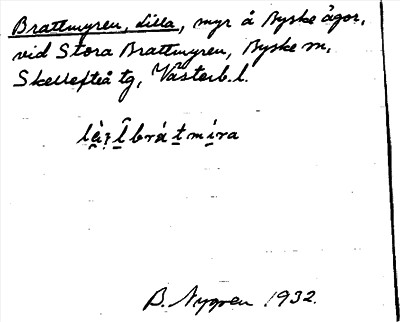 Brattmyren, lilla, myr å Byske ägor,
vid Stora Brattmyren, Byske sn,
Skellefteå tg, Västerb. l.
brát míra
B. Nygren 1932.